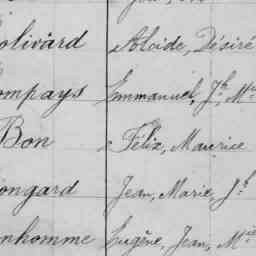 olivard Alcide, Désiré
ompays Emmanuel, Jh, Mie
Bon Félix, Maurice
ongard Jean, Marie, Jh
nhomme Eugène, Jean, Mie